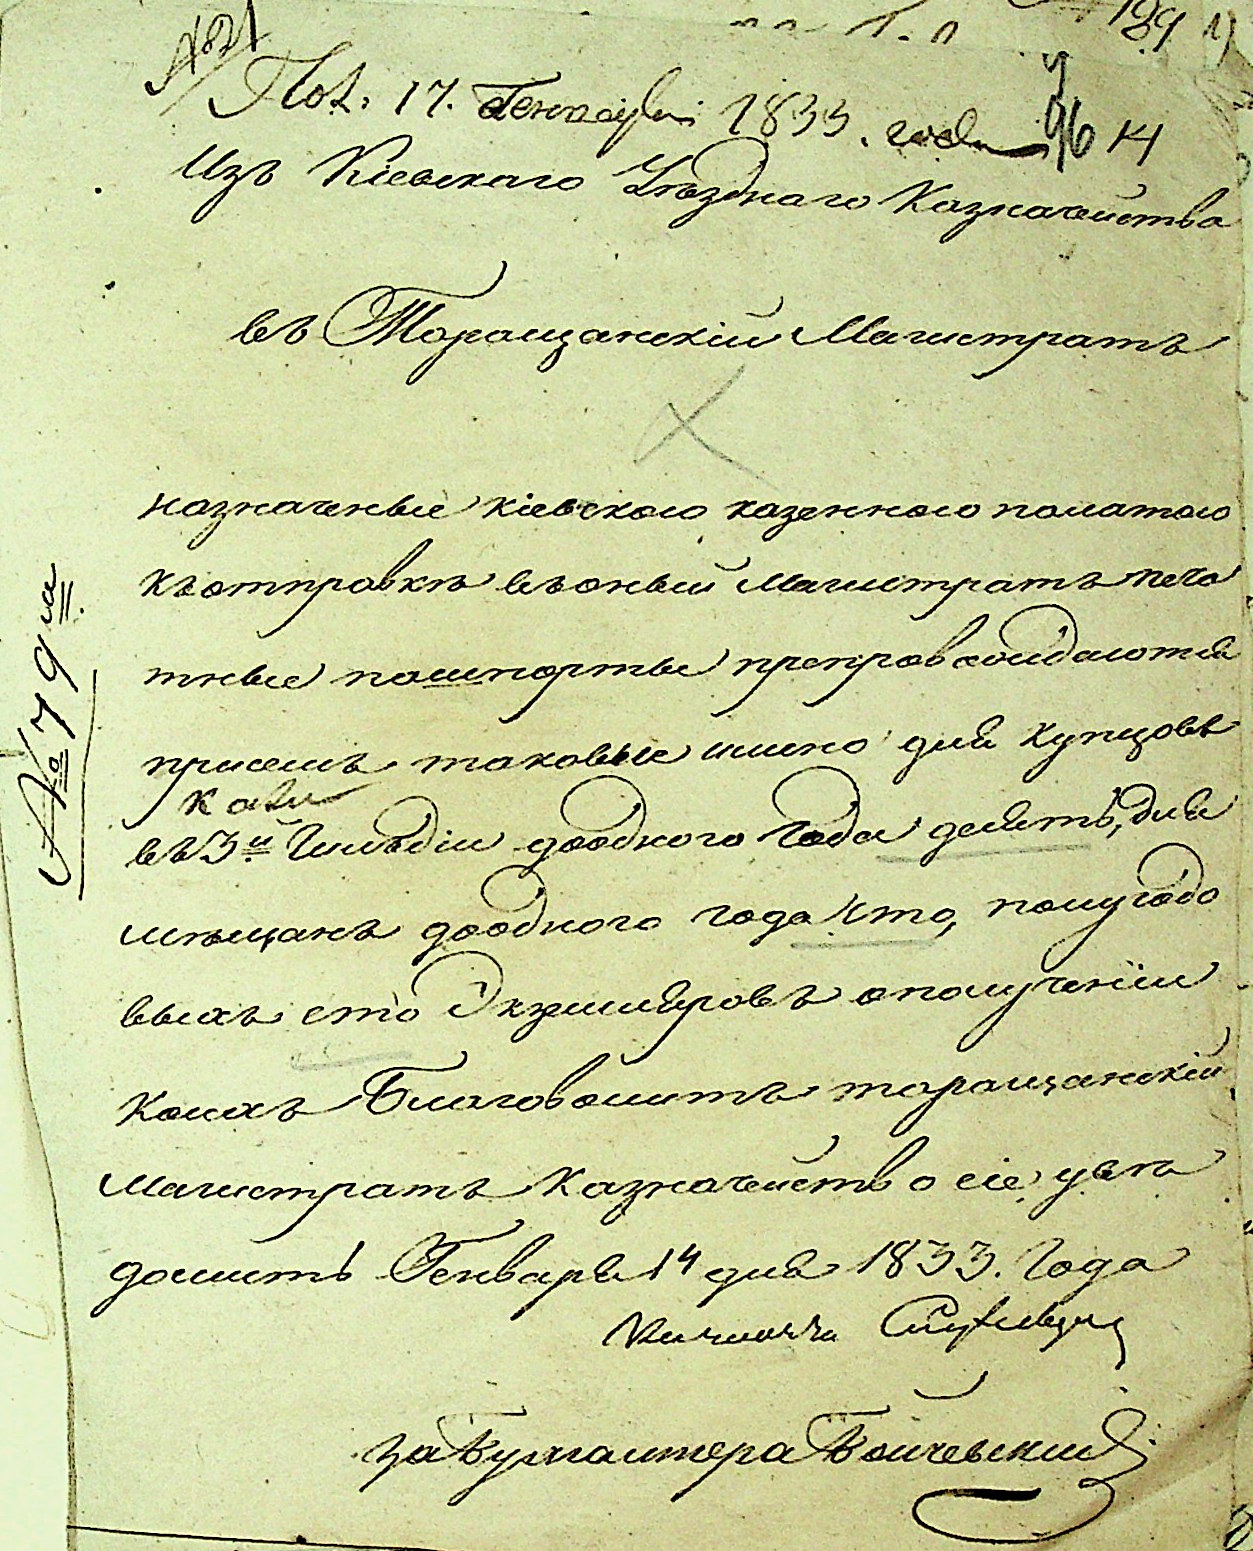 Пол. 17. Генваря 1833. года
14
Изъ Кіевскаго Уѣзднаго Казначейства
въ Таращанскій Магистратъ
назначеные кіевскою казенною полатою
къ отправкѣ въ оный Магистратъ печа
тные пашпорты препровождаются
при семъ таковые имено для купцовъ
въ 3й Гильдіи доодного Года десять, для
мѣщанъ доодного года сто, полугодо
выхъ сто Экземпляровъ ополученіи
коихъ Благоволитъ таращанскій
Магистратъ Казначейство сіе увѣ
домить Генваря 14 дня 1833. Года
за Бухгалтера
№ 79